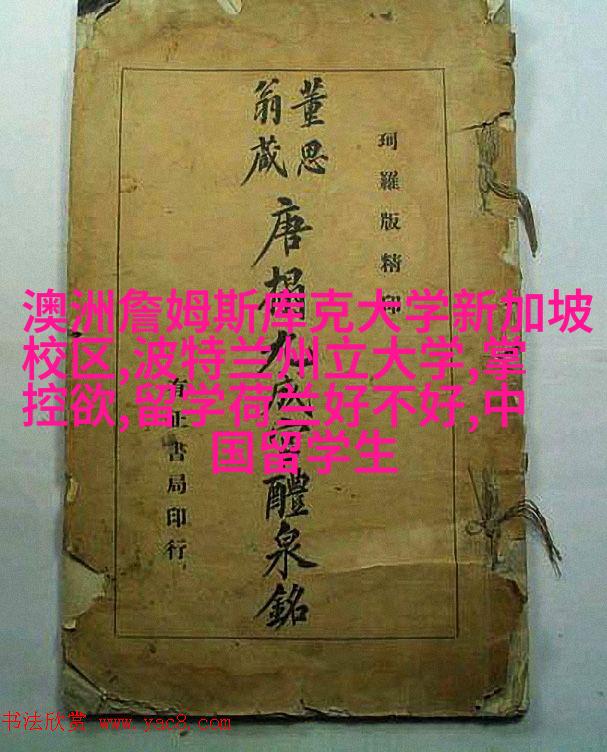 珂羅版精印
董思
翁藏
唐搨九成宮醴泉銘
有正書局印行
澳洲詹姆斯库克大学新加坡
校区,波特兰州立大学,掌
控欲,留学荷兰好不好,中
国留学生
书法欣赏 www.yac8.com